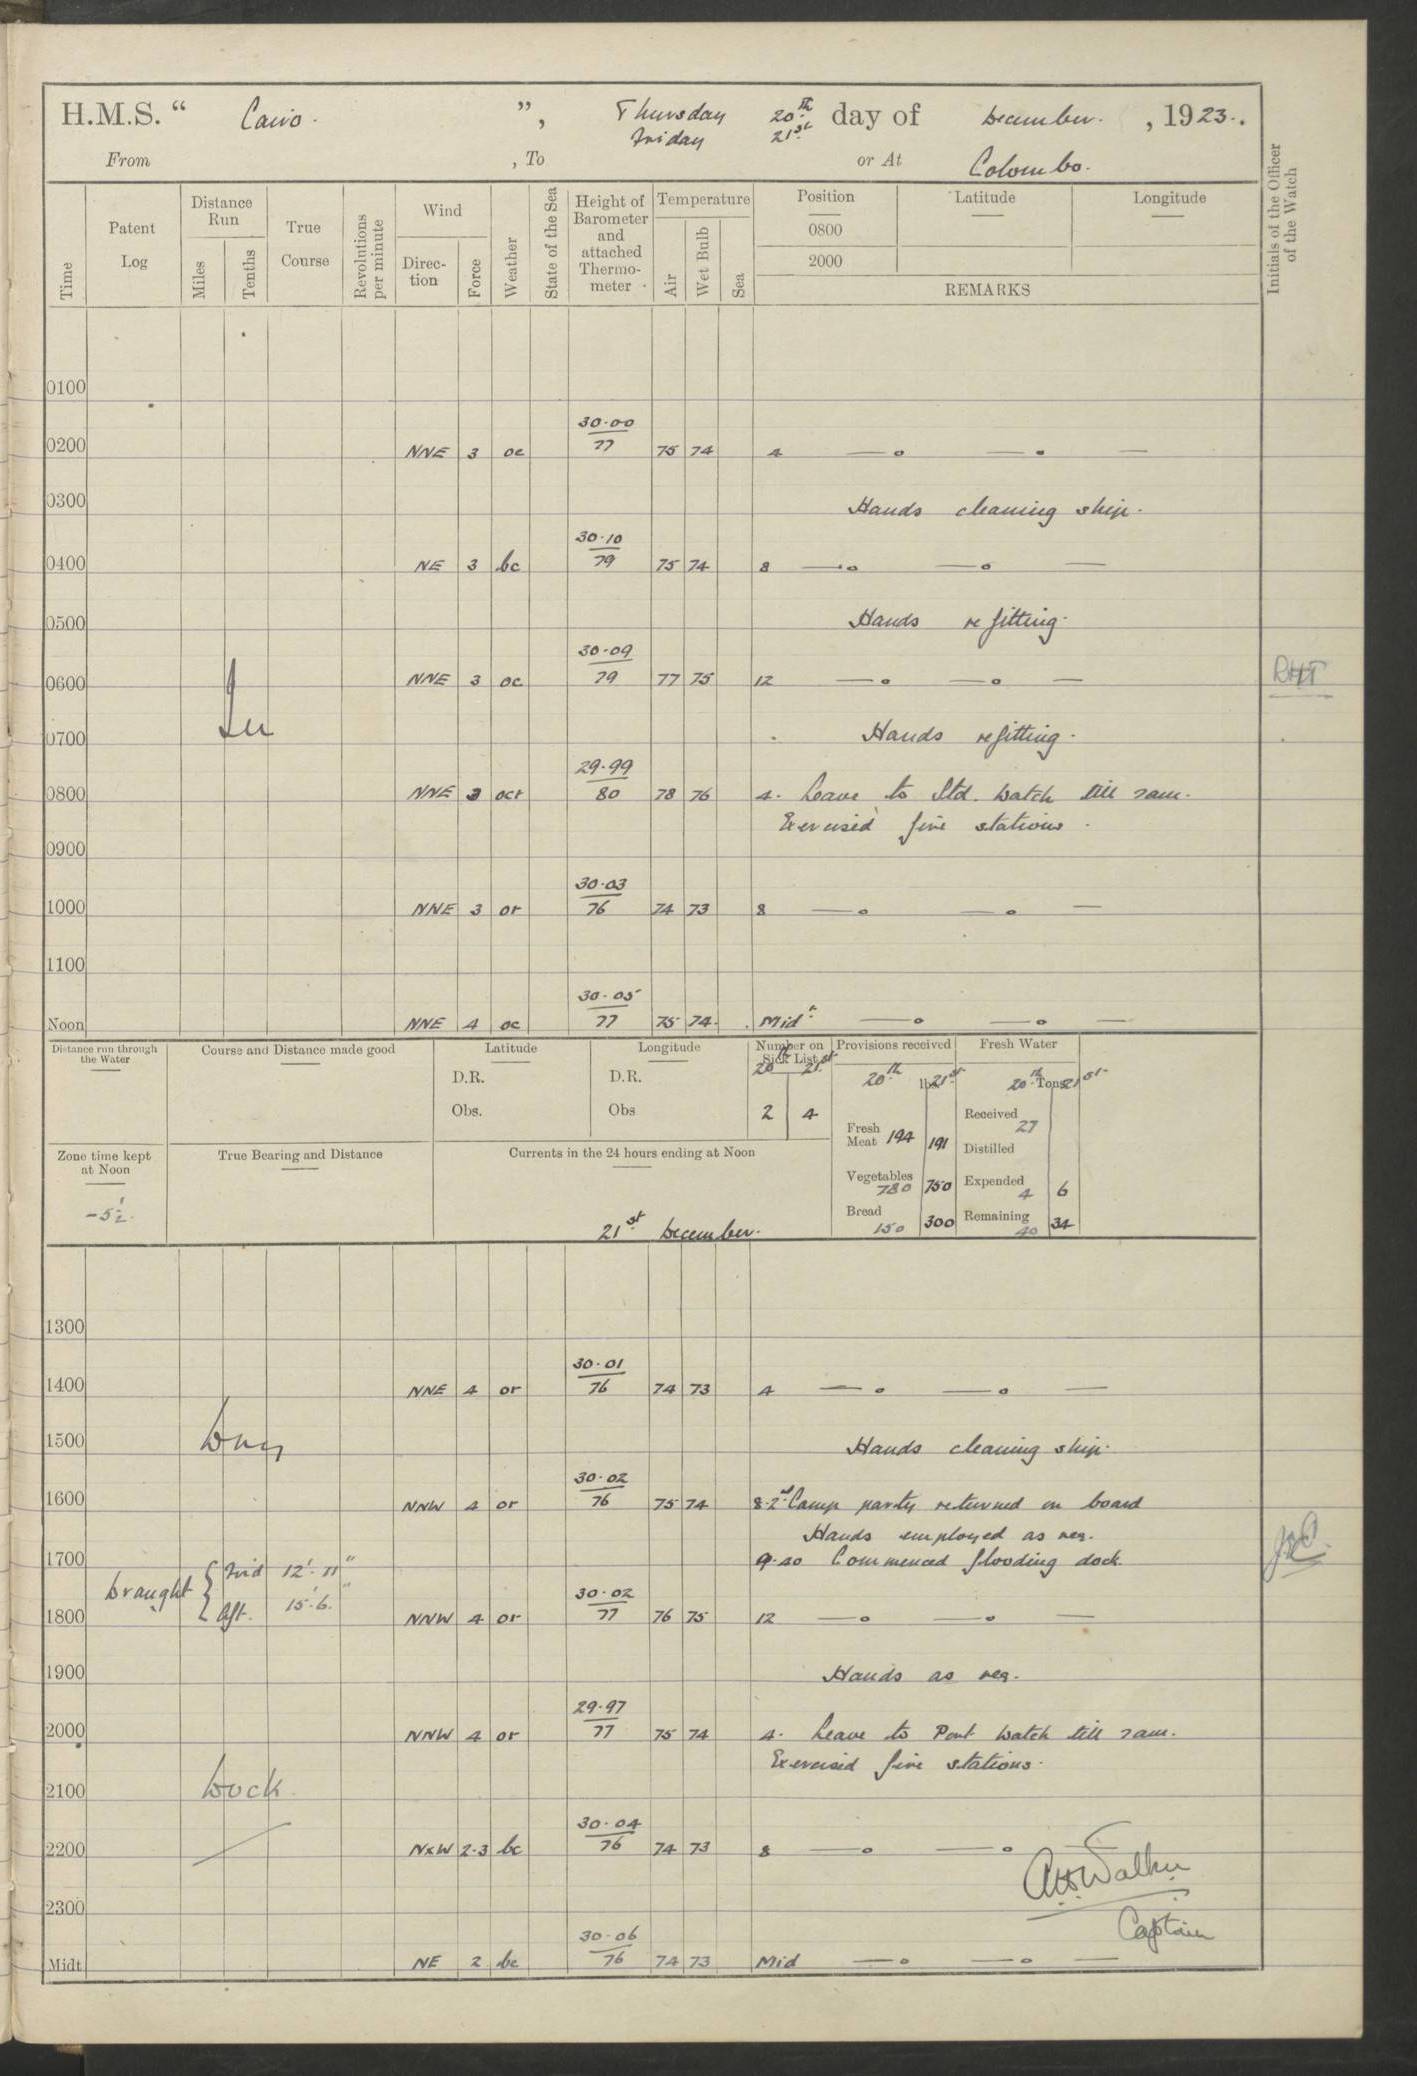 H.M.S. “ Cairo. ”, Thursday 20th day of December. , 1923.
Friday 21st
From , To or At Colombo.
Time
Patent Log
Distance Run
Miles
Tenths
True Course
Revolutions per minute
Wind
Direction
Force
Weather
State of the Sea
Height of Barometer and attached Thermometer
Temperature
Air
Wet Bulb
Sea
Position
0800
2000
Latitude
Longitude
REMARKS
Initials of the Officer of the Watch
0100
30·00
0200 NNE 3 oc 77 75 74 4 — o — • —
0300 Hands cleaning ship.
30·10
0400 NE 3 bc 79 75 74 8 — o — o —
0500 Hands refitting.
30·09
0600 NNE 3 oc 79 77 75 12 — o — o — RHT
In
0700 Hands refitting.
29·99
0800 NNE 3 ocr 80 78 76 4. Leave to Std. Watch till 7am.
Exercised fire stations.
0900
30·03
1000 NNE 3 or 76 74 73 8 — o — o —
1100
30·05
Noon NNE 4 oc 77 75 74 Midt — o — o —
Distance run through the Water
Course and Distance made good
Latitude
D.R.
Obs.
Longitude
D.R.
Obs
Number on Sick List
20th 21st
2 4
Provisions received
20th lbs. 21st
Fresh Meat 194 191
Vegetables 780 750
Bread 150 300
Fresh Water
20th Tons 21st
Received 27
Distilled
Expended 4 6
Remaining 40 34
Zone time kept at Noon
-5½.
True Bearing and Distance
Currents in the 24 hours ending at Noon
21st December.
1300
30·01
1400 NNE 4 or 76 74 73 4 — o — o —
1500 Dry Hands cleaning ship.
30·02
1600 NNW 4 or 76 75 74 8·2nd Camp party returned on board
Hands employed as req.
1700 9·40 Commenced flooding dock.
Draught { Fwd 12'·11"
Aft. 15'·6"
30·02
1800 NNW 4 or 77 76 75 12 — o — o —
1900 Hands as req.
29·97
2000 NNW 4 or 77 75 74 4. Leave to Port Watch till 7am.
Exercised fire stations.
2100 Dock
30·04
2200 NxW 2·3 bc 76 74 73 8 — o — o
Walker
2300 Captain
30·06
Midt NE 2 bc 76 74 73 Mid — o — o —